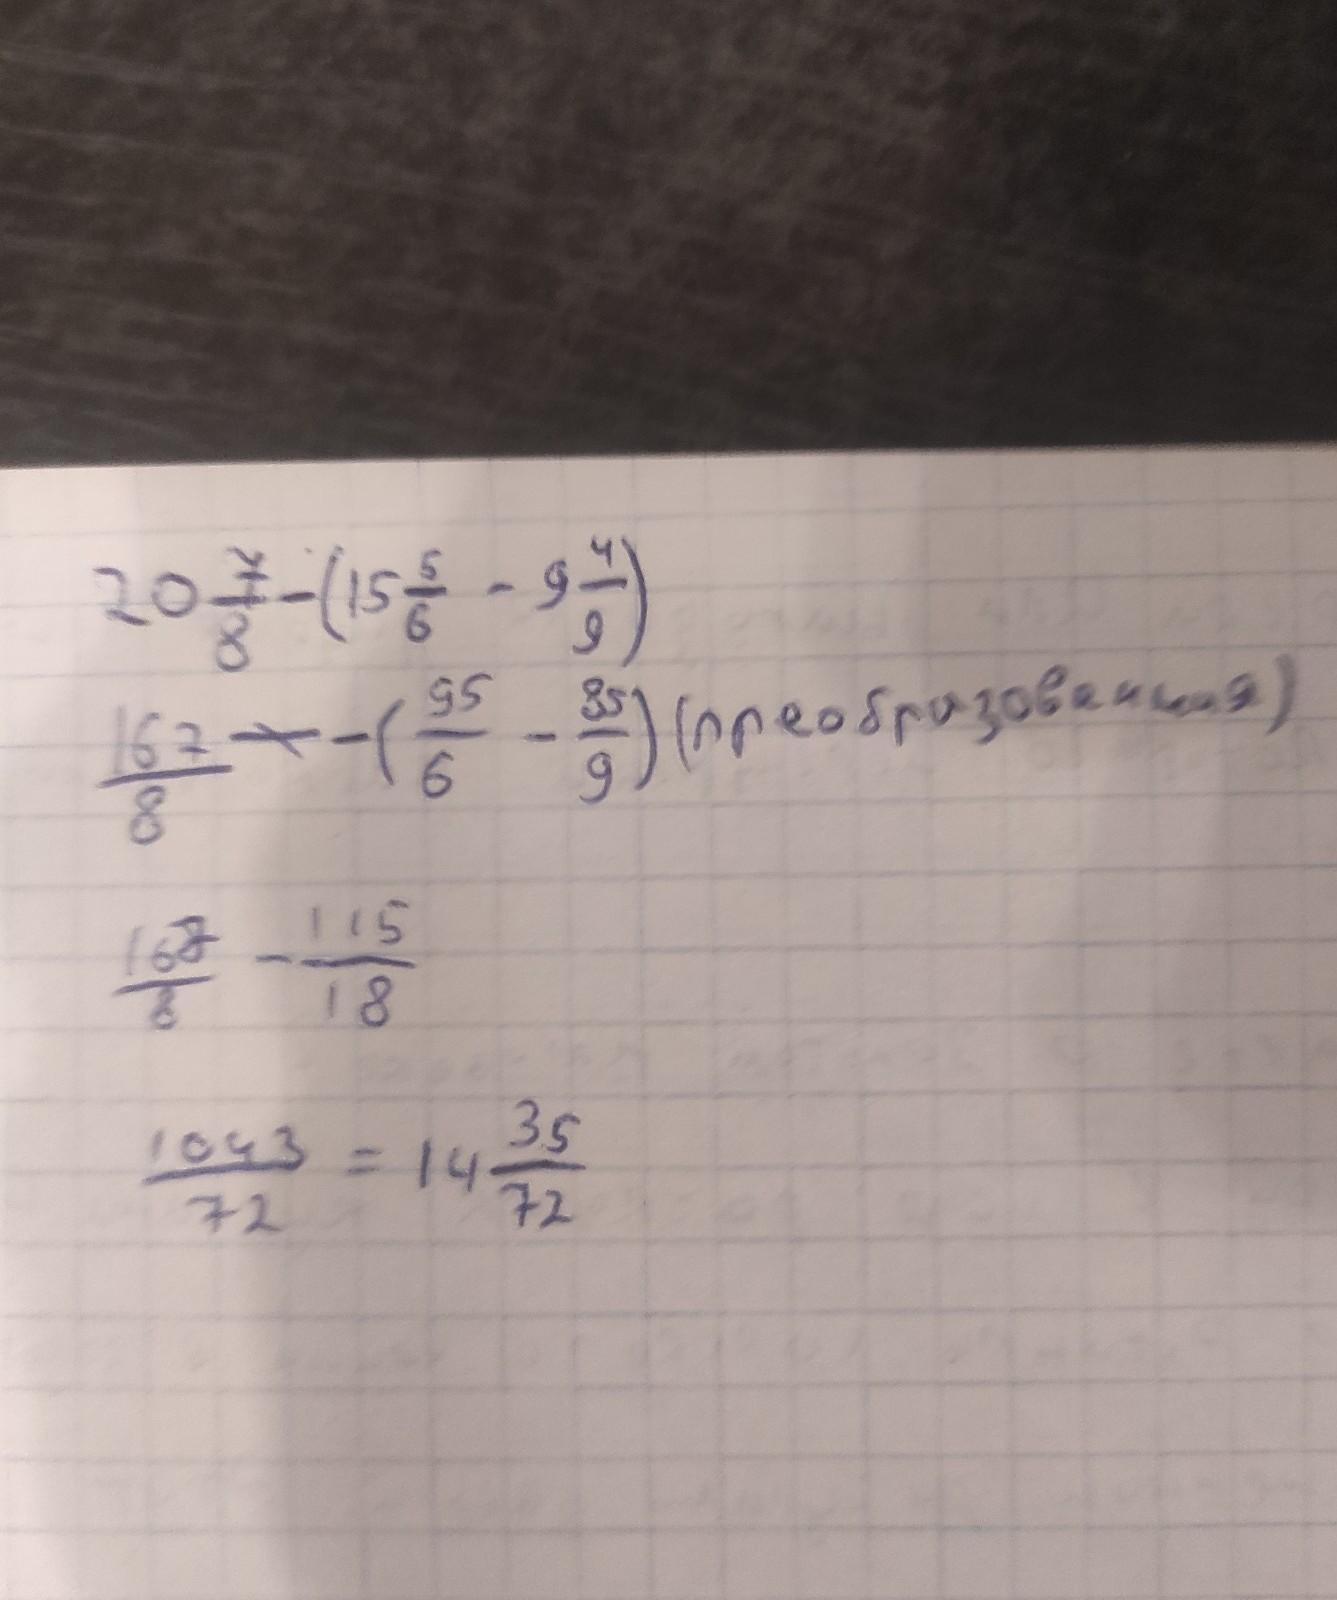 20 7/8 - (15 5/6 - 9 4/9)
167/8 - (95/6 - 85/9) (преобразования)
167/8 - 115/18
1043/72 = 14 35/72